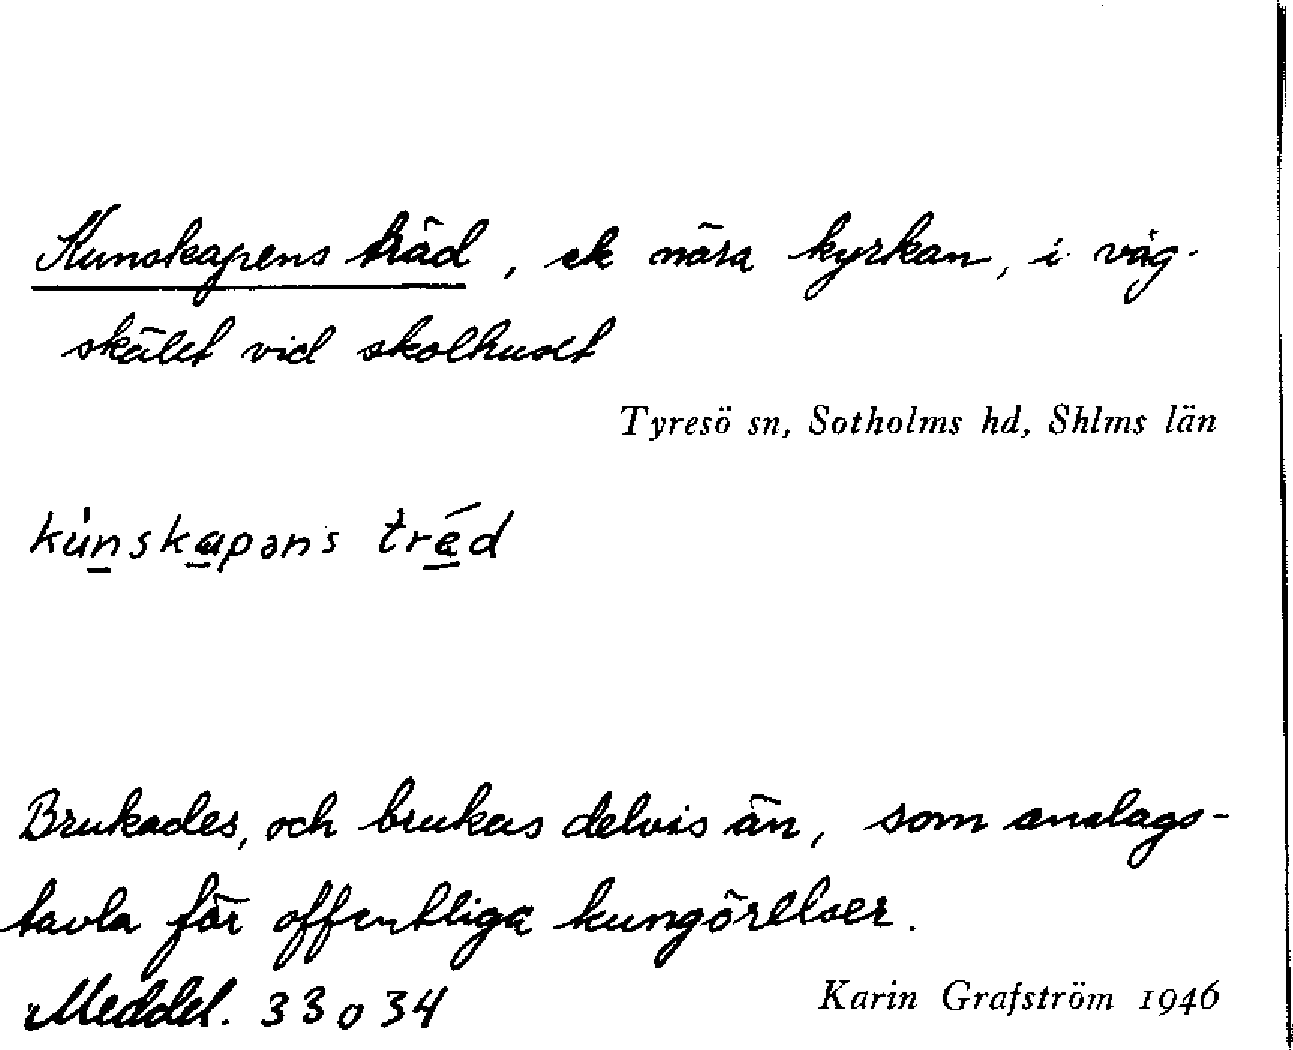 Kunskapens träd, ek nära kyrkan, i väg-
skälet vid skolhuset
Tyresö sn, Sotholms hd, Shlms län
kunskapəns träd
Brukades, och brukas delvis än, som anslags-
tavla för offentliga kungörelser.
Meddel. 33 o 34
Karin Grafström 1946